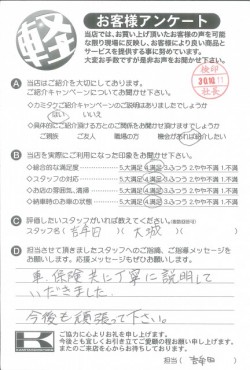 軽
お客様アンケート
当店では、お買い上げ頂いたお客様の声を可能
な限り現場に反映し、お客様により良い商品と
サービスを提供する事に努めています。
大変お手数ですが是非お声をお聞かせ下さい。
検印
社長
A 当店はご紹介を大切にしております。
ご紹介キャンペーンについてお聞かせ下さい。
◇カミタクご紹介キャンペーンのご説明はありましたでしょうか
はい いいえ
◇具体的にご紹介頂ける方とのご関係をお聞かせ頂けますでしょうか
ご親族 ご友人 職場の方 機会があれば紹介したい
B 当店を実際にご利用になった印象をお聞かせ下さい。
◇総合的な満足度 5.大満足 4.満足 3.ふつう 2.やや不満 1.不満
◇スタッフの対応 5.大満足 4.満足 3.ふつう 2.やや不満 1.不満
◇お店の雰囲気、清掃 5.大満足 4.満足 3.ふつう 2.やや不満 1.不満
◇納車時のお車の状態 5.大満足 4.満足 3.ふつう 2.やや不満 1.不満
C 評価したいスタッフがいれば教えてください。(複数回答可)
スタッフ名( 吉牟田 )( 大城 )( )
D 担当させて頂きましたスタッフへのご指摘、ご指導メッセージを
お願いします。応援メッセージもぜひお願いします!
車、保険共に丁寧に説明して
いただきました。
今後も頑張って下さい。
K
ご協力に心よりお礼を申し上げます。
今後とも宜しくお引き立てご愛顧の程お願い申し上げます。
またのご来店を心からお待ちしております。
担当( 吉牟田 )